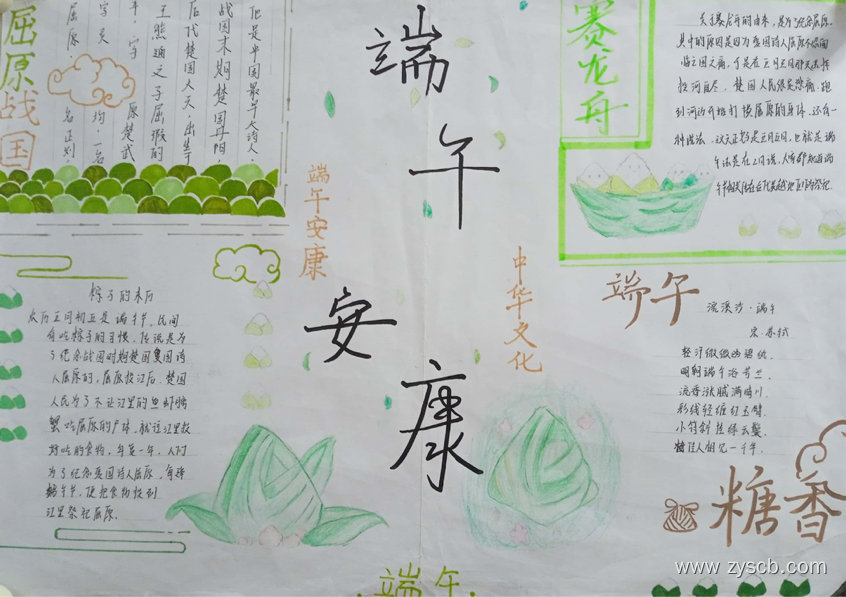 屈原战国
他是中国最早大诗人.
战国末期楚国丹阳.
后代楚国人夫.出生于
王熊通之子屈瑕的
字 原 楚武
字灵均.一名
屈原 名正则.
端午安康
端午安康
中华文化
赛龙舟
关于赛龙舟的由来,是为了纪念屈原.
具中的原因是因为爱国诗人屈原不忍面
临亡国之痛,于是在五月五日那天选择
投河自尽. 楚国人民很是悲痛,跑
到河边开始打捞屈原的身体.还有一
种说法.
粽子的来历
农历五月初五是端午节.民间
有吃粽子的习惯.传说是为
了纪念战国时期楚国爱国诗
人屈原的.屈原投江后.楚国
人民为了不让江里的鱼虾螃
蟹吃屈原的尸体.就往江里投
好吃的食物,年复一年.人们
为了纪念爱国诗人屈原.每逢
端午节.便把食物投到
江里祭祀屈原.
端午
浣溪沙·端午
宋·苏轼
轻汗微微透碧纨.
明朝端午浴芳兰.
流香涨腻满晴川.
彩线轻缠红玉臂.
小符斜挂绿云鬟.
佳人相见一千年.
糖香
端午.
www.zyscb.com